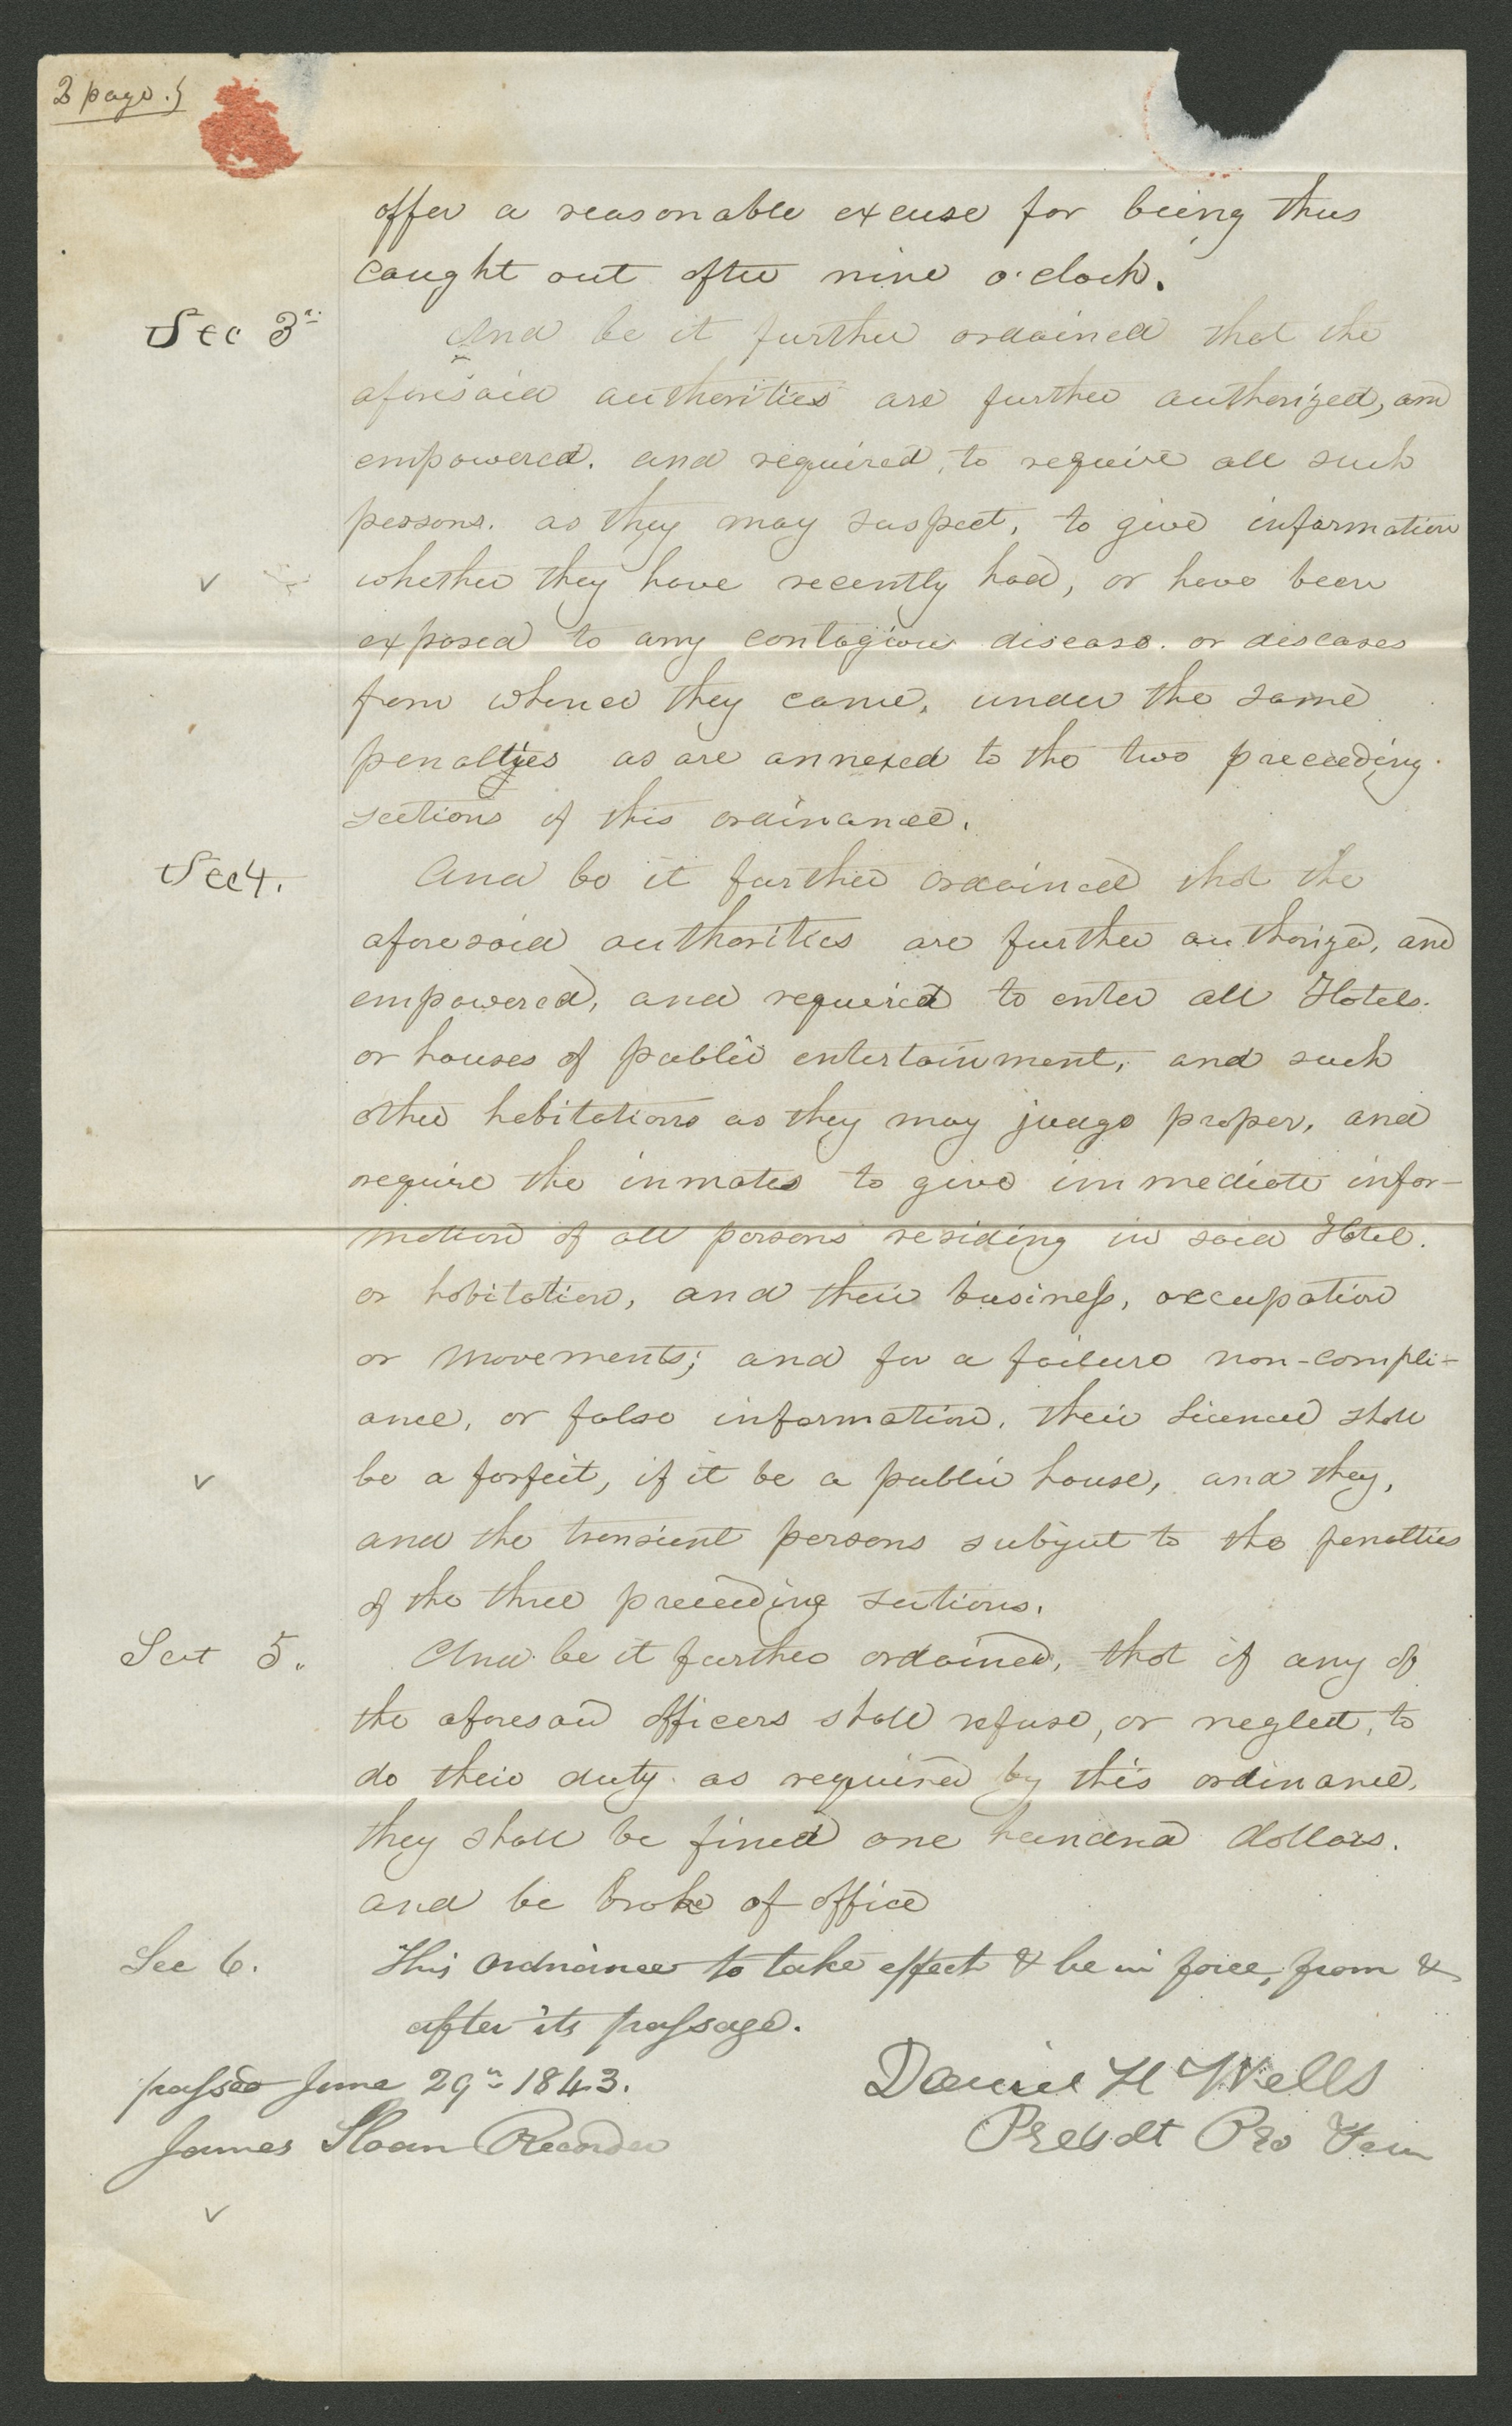 2 page.}
offer a reasonable excuse for being thus
caught out after nine o'clock.
Sec 3d. And be it further ordained that the
aforesaid authorities are further authorized, and
empowered. and required, to require all such
persons. as they may suspect, to give information
whether they have recently had, or have been
exposed to any contagious disease. or diseases
from whence they came, under the same
penalties as are annexed to the two preceeding
sections of this ordinance.
Sec 4. And be it further ordained that the
aforesaid authorities are further authorized, and
empowered, and required to enter all Hotels.
or houses of public entertainment, and such
other habitations as they may judge proper, and
require the inmates to give immediate infor-
mation of all persons residing in said Hotel.
or habitation, and their business, occupation
or movements; and for a failure non-compli-
ance, or false information, their licence shall
be a forfeit, if it be a public house, and they,
and the transient persons subject to the penalties
of the three preceeding sections.
Sect 5. And be it further ordained, that if any of
the aforesaid officers shall refuse, or neglect, to
do their duty as required by this ordinance,
they shall be fined one hundred dollars.
and be broke of office
Sec 6. This ordinance to take effect & be in force, from &
after its passage.
passed June 29th 1843. Daniel H Wells
James Sloan Recorder Presdt Pro Tem